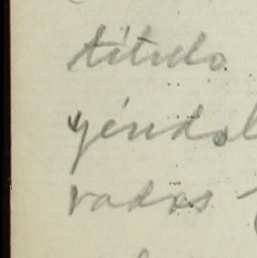 título
yéndol
vadas